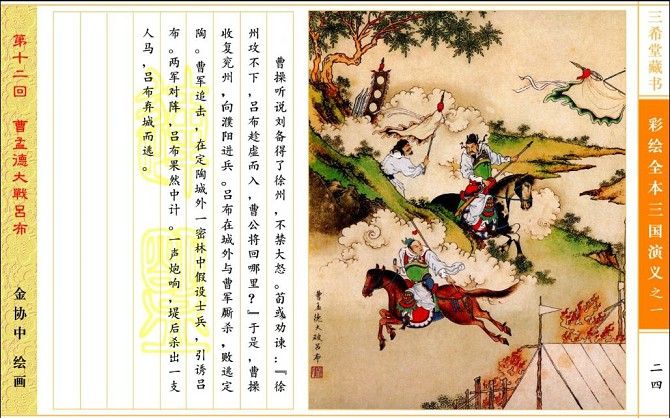 三希堂藏书
彩绘全本三国演义之一
二四
曹孟德大破呂布
曹操听说刘备得了徐州，不禁大怒。荀彧劝谏：『徐
州攻不下，吕布趁虚而入，曹公将回哪里？』于是，曹操
收复兖州，向濮阳进兵。吕布在城外与曹军厮杀，败逃定
陶。曹军追击，在定陶城外一密林中假设士兵，引诱吕
布。两军对阵，吕布果然中计。一声炮响，堤后杀出一支
人马，吕布弃城而逃。
第十二回 曹孟德大戰呂布
金协中 绘画